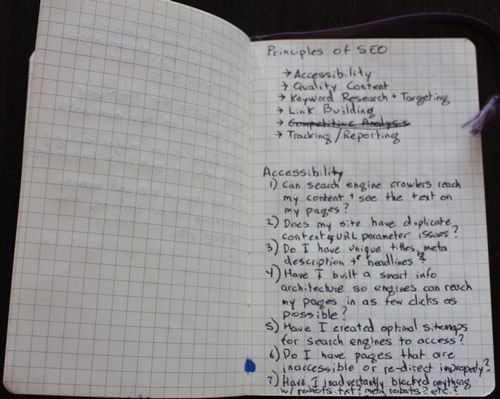 Principles of SEO
→ Accessibility
→ Quality Content
→ Keyword Research + Targeting
→ Link Building
→ Competitive Analysis
→ Tracking/Reporting
Accessibility
1) Can search engine crawlers reach
my content + see the text on
my pages?
2) Does my site have duplicate
content & URL parameter issues?
3) Do I have unique titles, meta
description + headlines?
4) Have I built a smart info
architecture so engines can reach
my pages in as few clicks as
possible?
5) Have I created optimal sitemaps
for search engines to access?
6) Do I have pages that are
inaccessible or re-direct improperly?
7) Have I inadvertantly blocked anything
w/ robots.txt, meta robots, etc.?